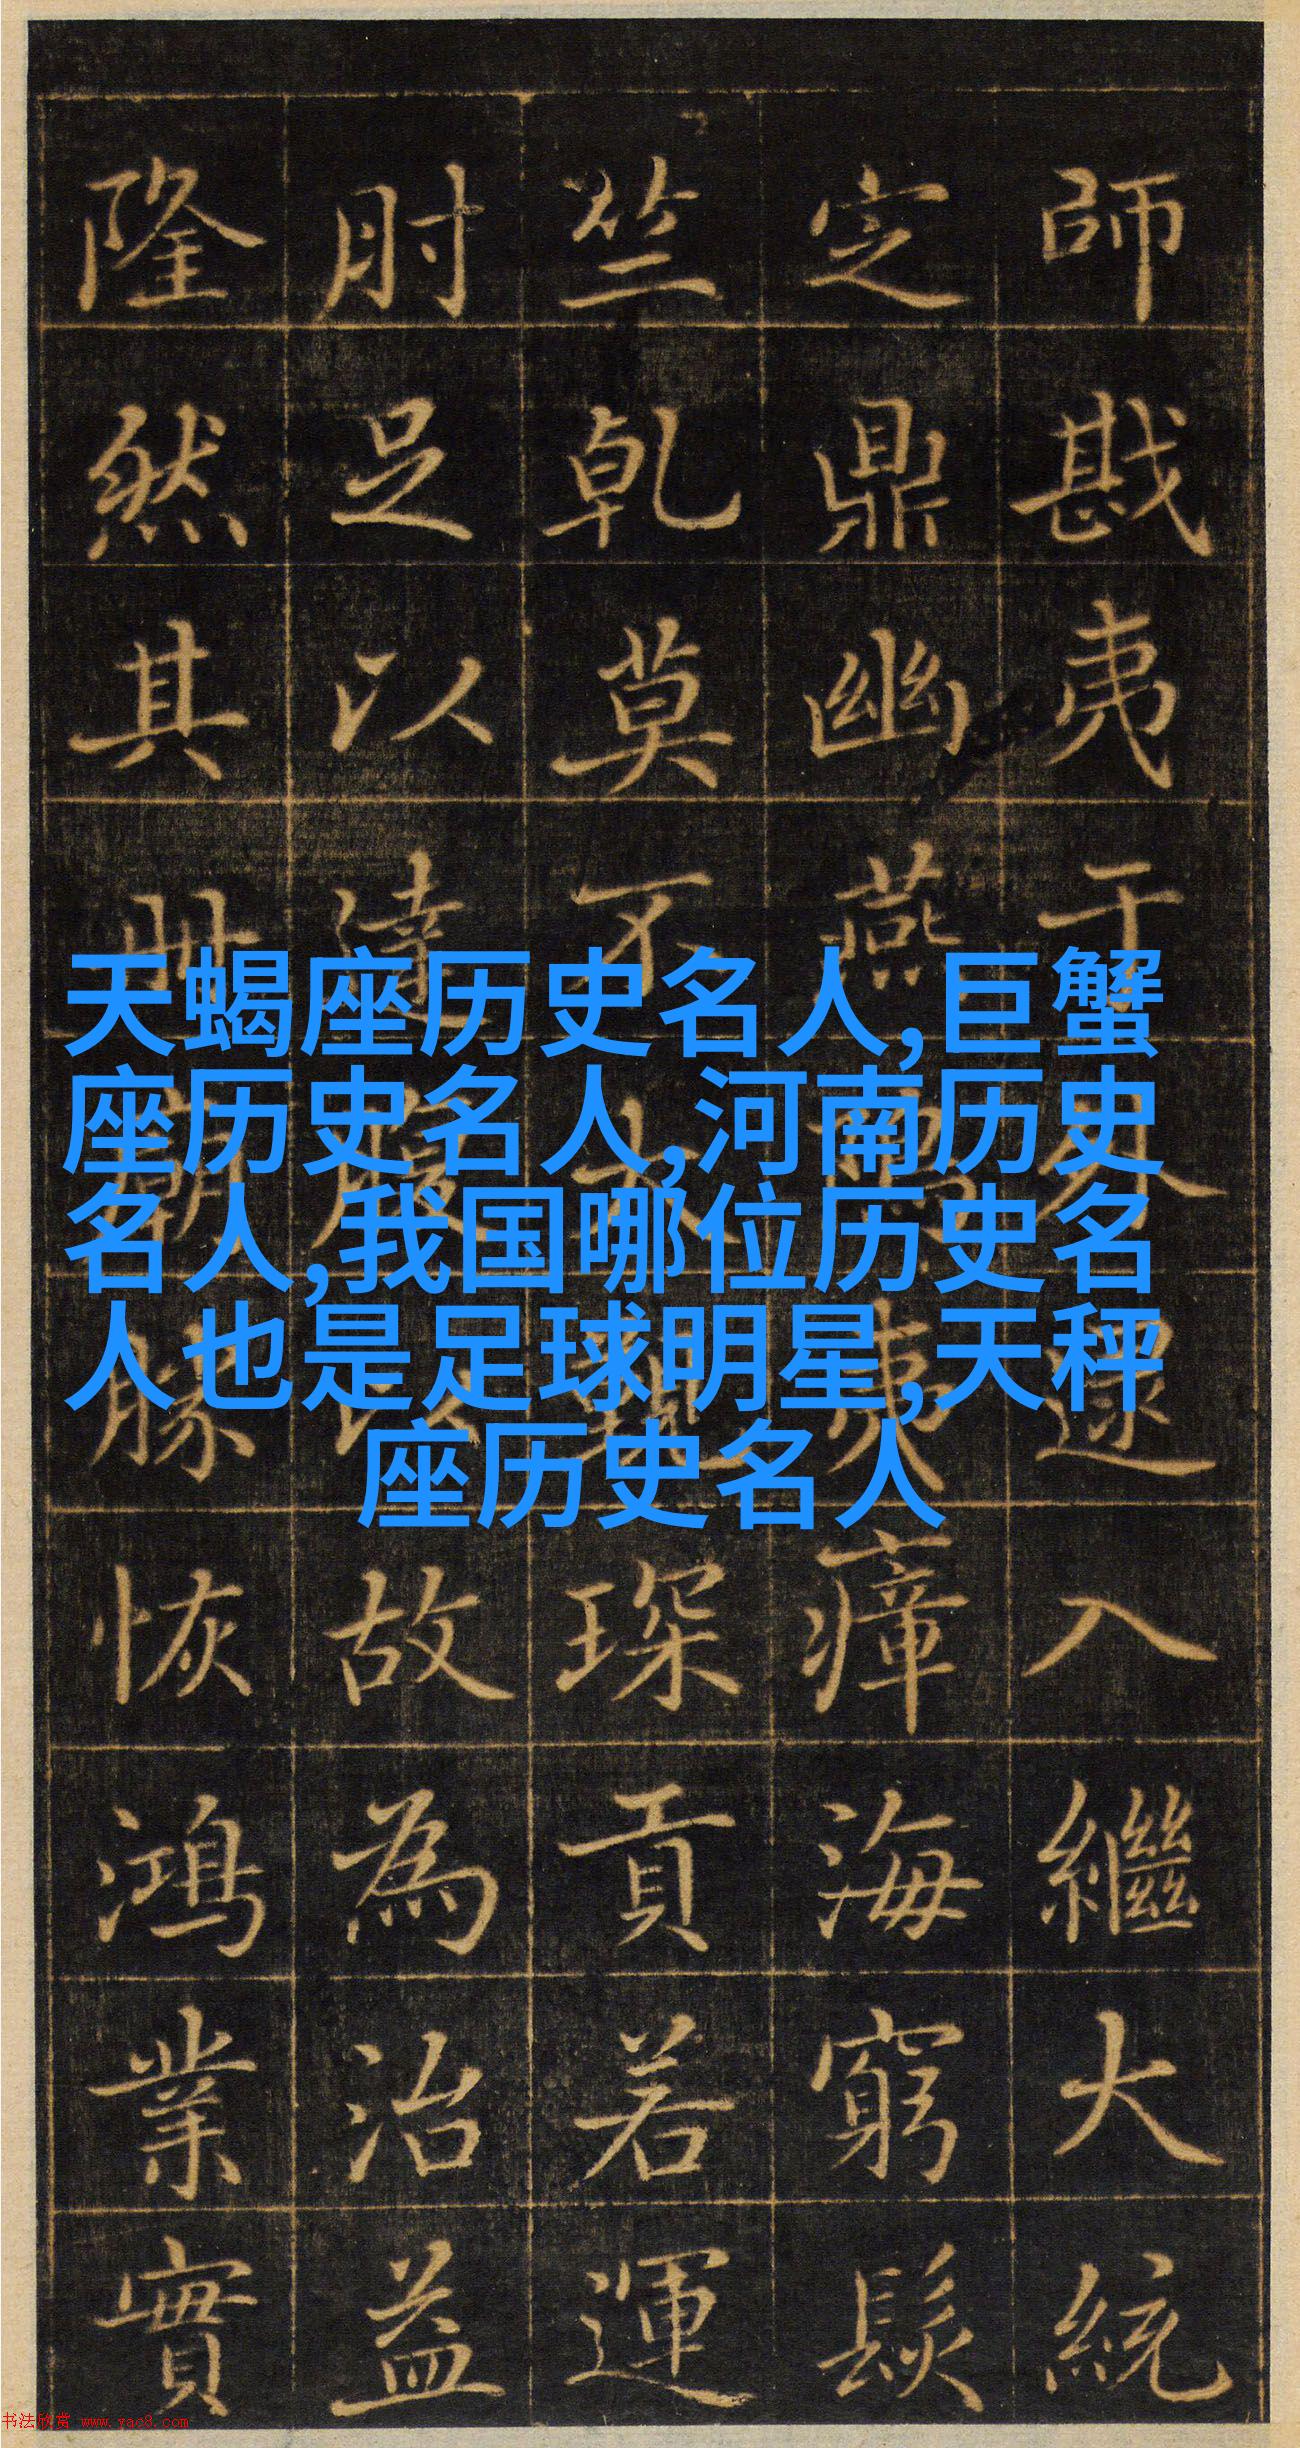 師戡夷于入繼大統
定鼎幽燕夷瘴海窮髮
竺乾莫不琛貢若運
肘足以達故為治益
隆然其冊勝恢鴻業實
天蝎座历史名人,巨蟹
座历史名人,河南历史
名人,我国哪位历史名
人也是足球明星,天秤
座历史名人
书法欣赏 www.yac8.com